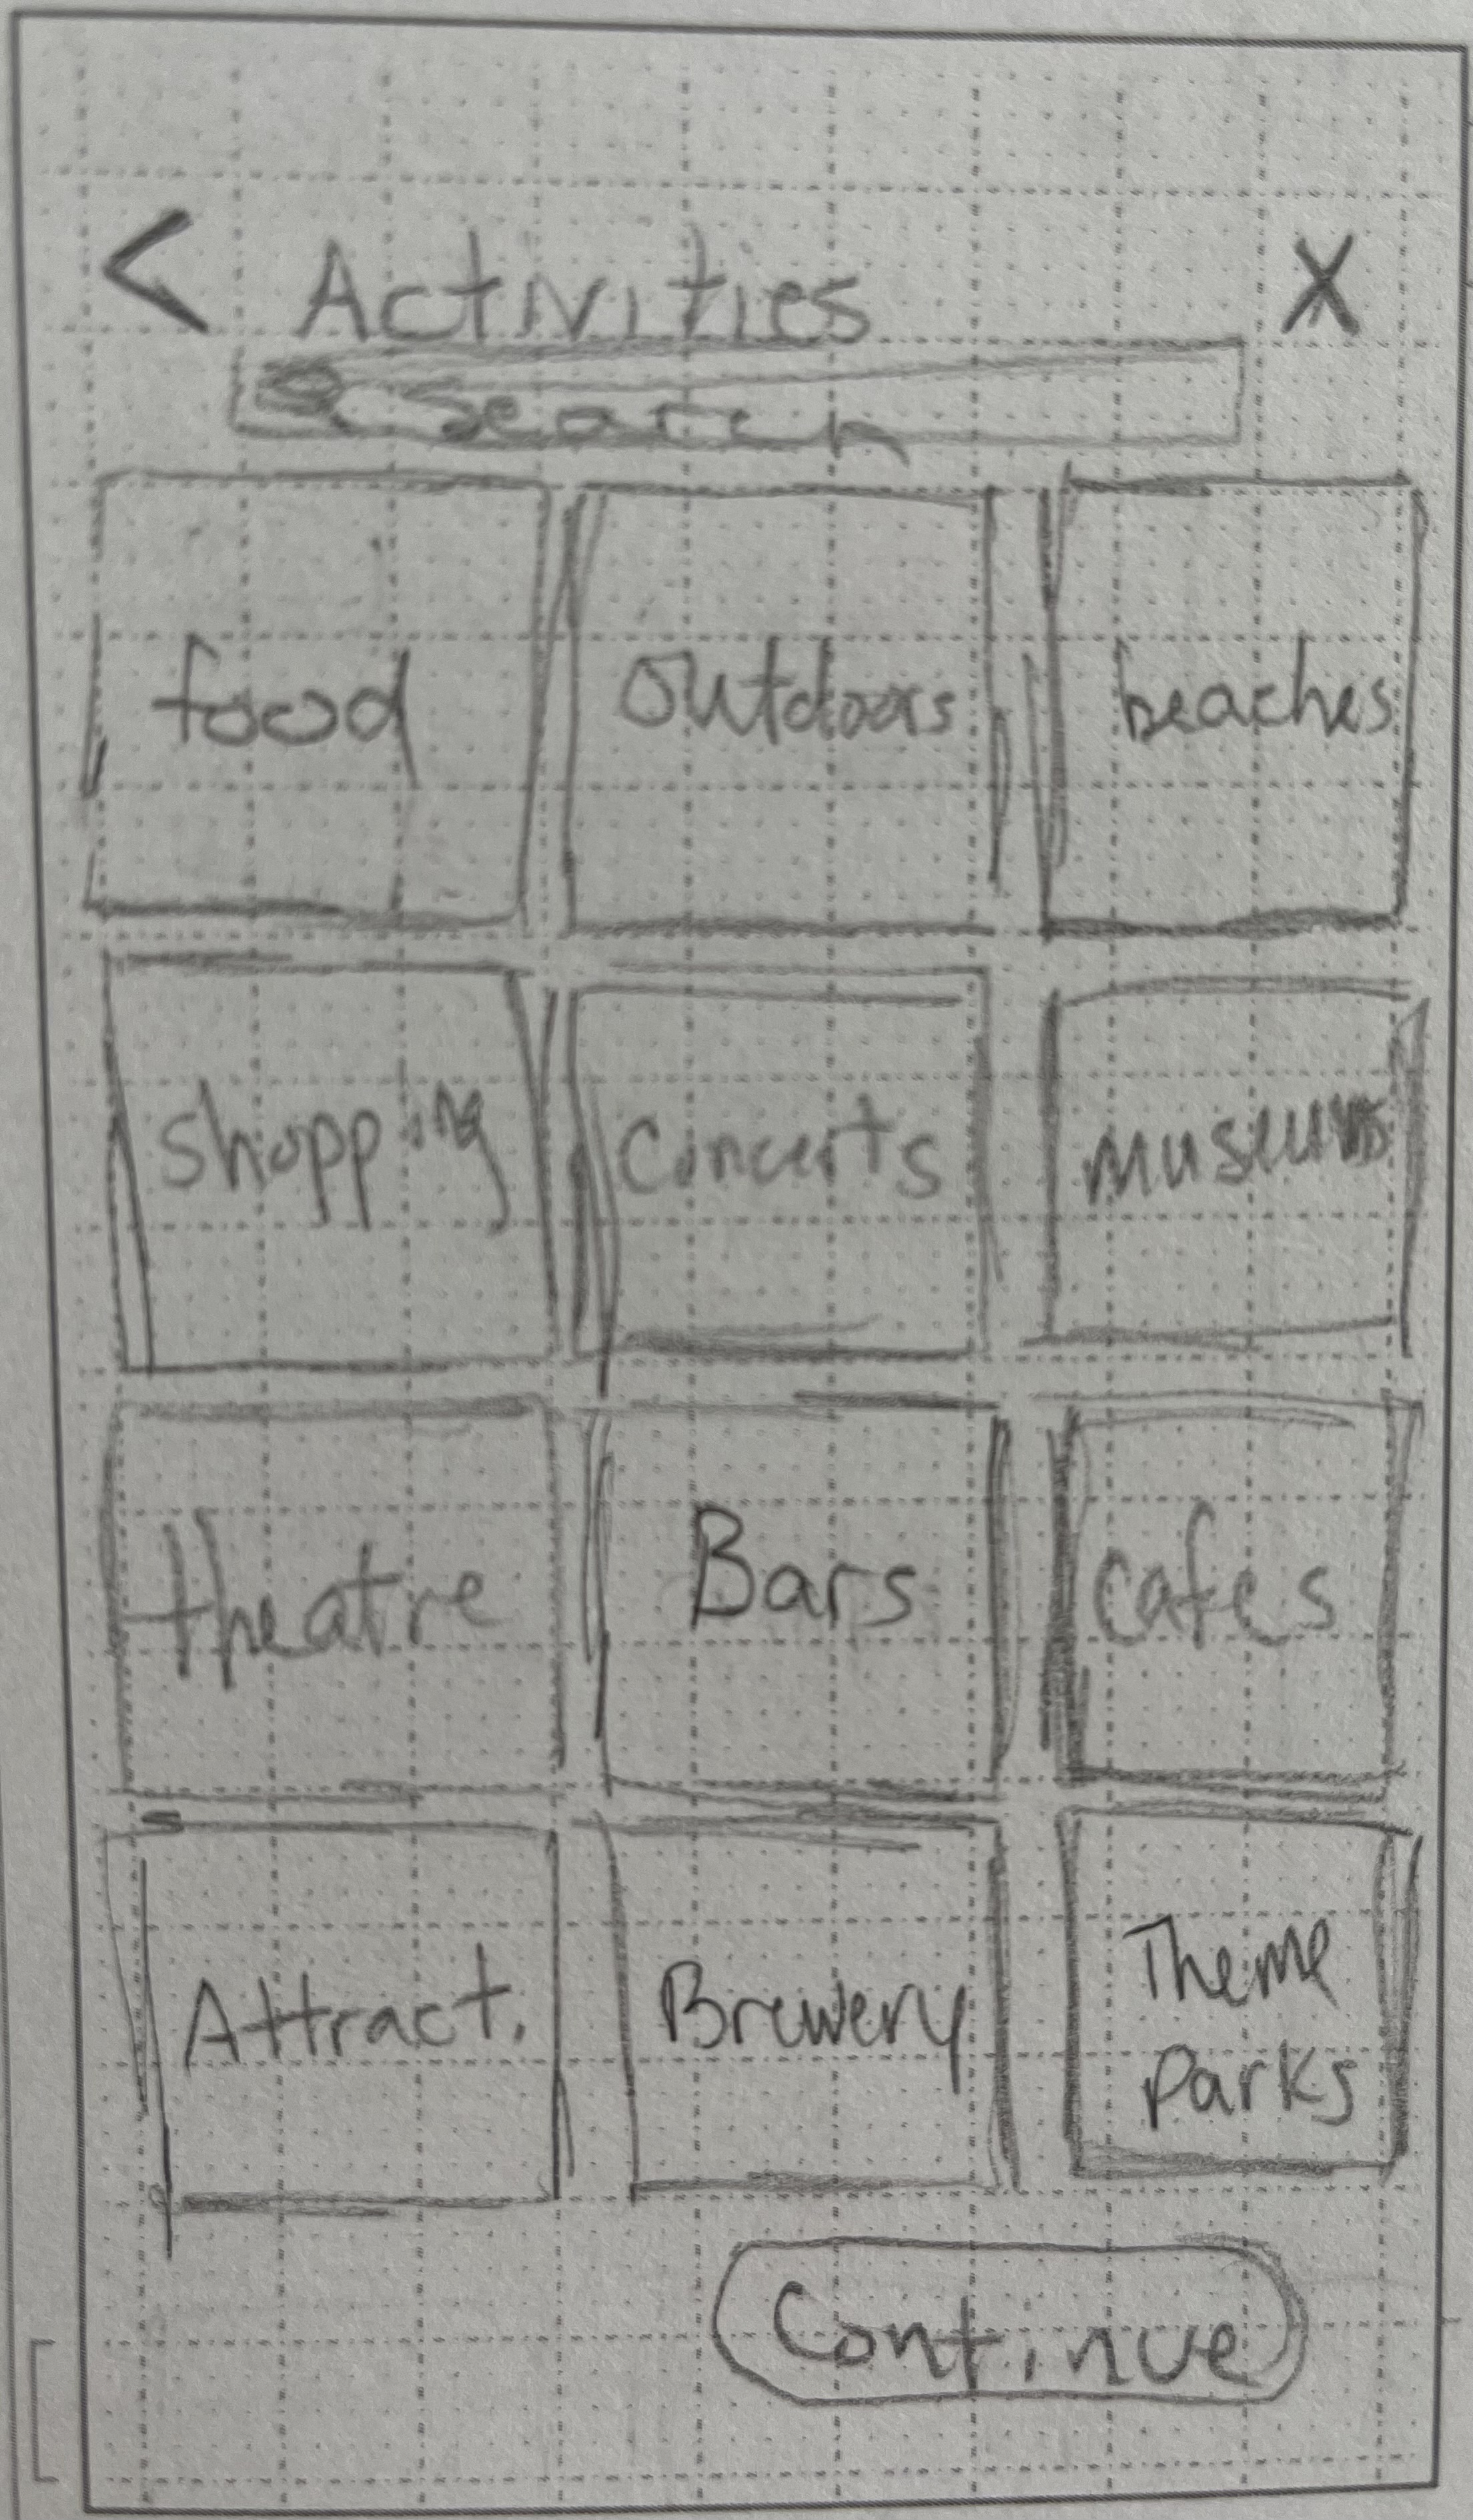 < Activities X
Search
food outdoors beaches
shopping Concerts museums
theatre Bars cafes
Attract. Brewery Theme
Parks
Continue